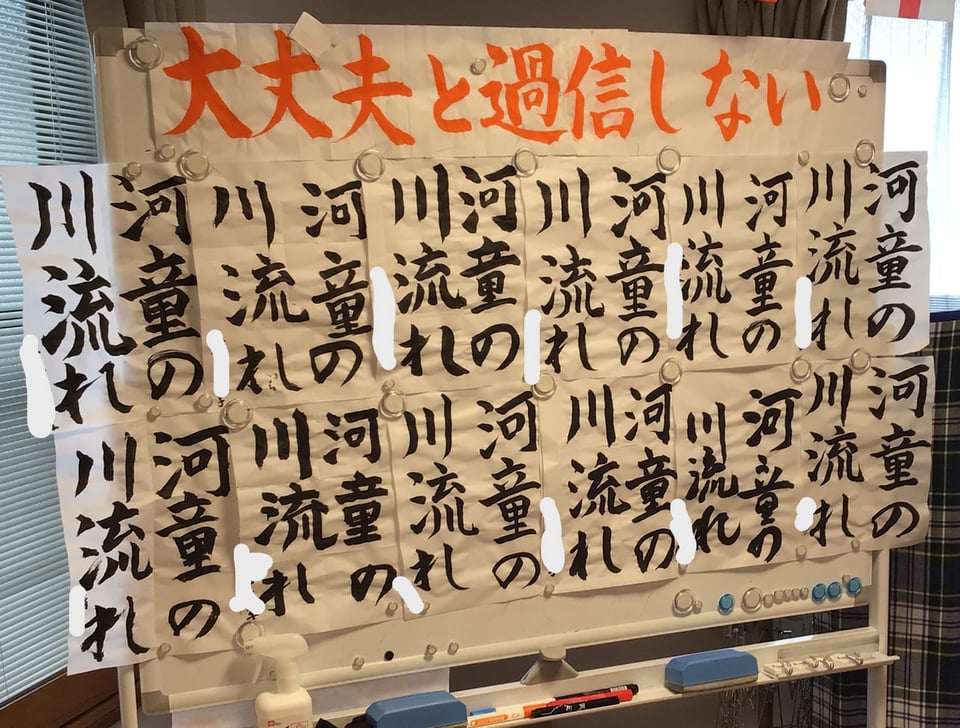 大丈夫と過信しない
河童の
川流れ
河童の
川流れ
河童の
川流れ
河童の
川流れ
河童の
川流れ
河童の
川流れ
河童の
川流れ
河童の
川流れ
河童の
川流れ
河童の
川流れ
河童の
川流れ
河童の
川流れ